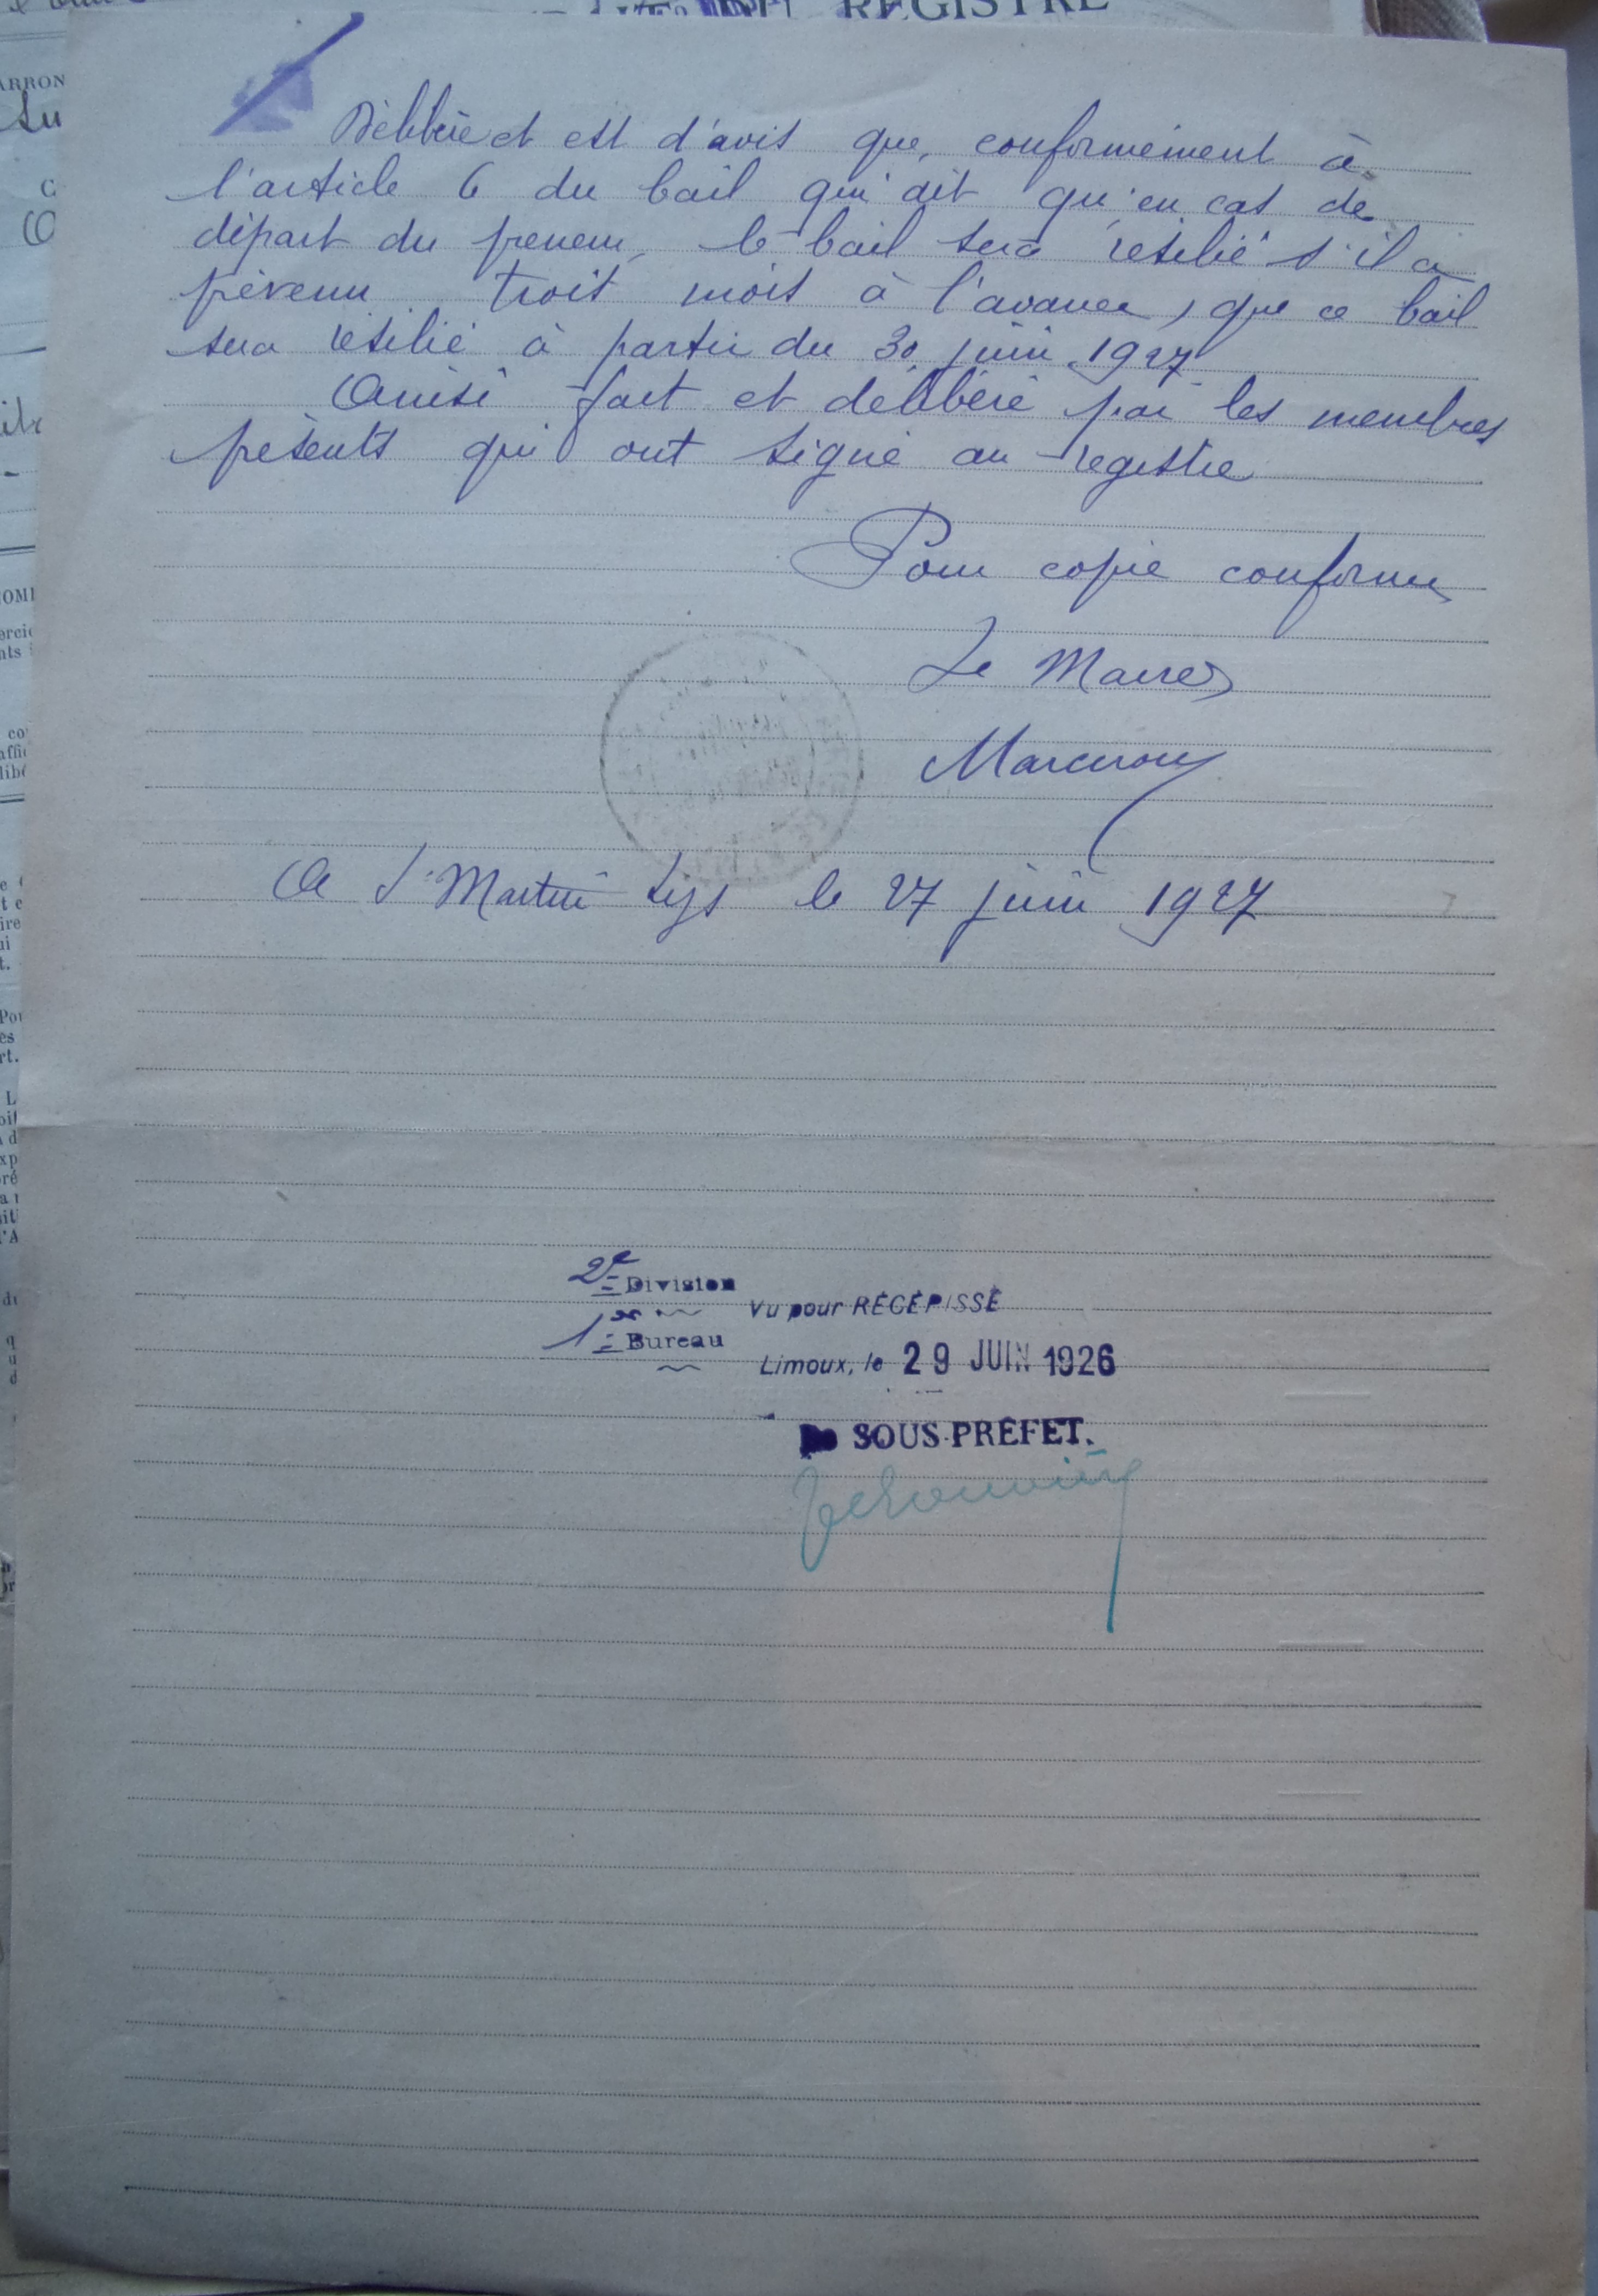 REGISTRE
Délibère et est d'avis que, conformément à
l'article 6 du bail qui dit qu'en cas de
départ du preneur, le bail sera résilié s'il a
prévenu trois mois à l'avance, que ce bail
sera résilié à partir du 30 juin 1927
Ainsi fait et délibéré par les membres
présents qui ont signé au registre
Pour copie conforme
Le Maire
A St Martin Lys le 27 juin 1927
2e Division
1er Bureau
Vu pour RÉCÉPISSÉ
Limoux, le 29 JUIN 1926
SOUS-PRÉFET.